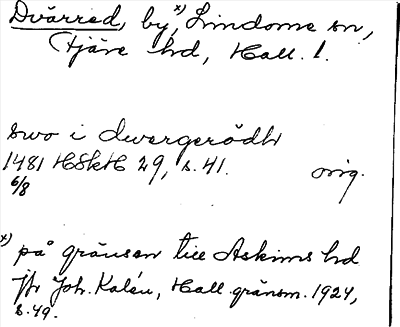 Dvärred, by,x) Lindome sn,
Fjäre hd, Hall. l.
swo i dwergerödh
1481 HSkH 29, s. 41. orig.
6/8
x) på gränsen till Askims hd
jfr Joh. Kalén, Hall. gränsm. 1924,
s. 49.